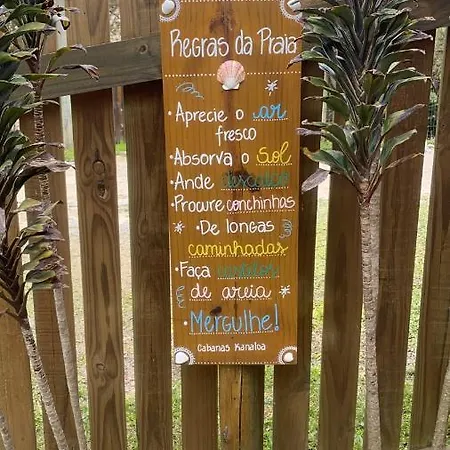 Regras da Praia
• Aprecie o ar
fresco
• Absorva o Sol
• Ande descalço
• Procure conchinhas
• De longas
caminhadas
• Faça castelos
de areia
• Mergulhe!
Cabanas Kanaloa